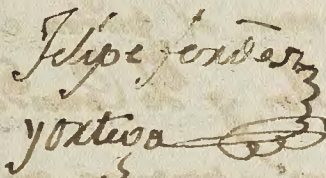 Felipe ferndes
y ortega